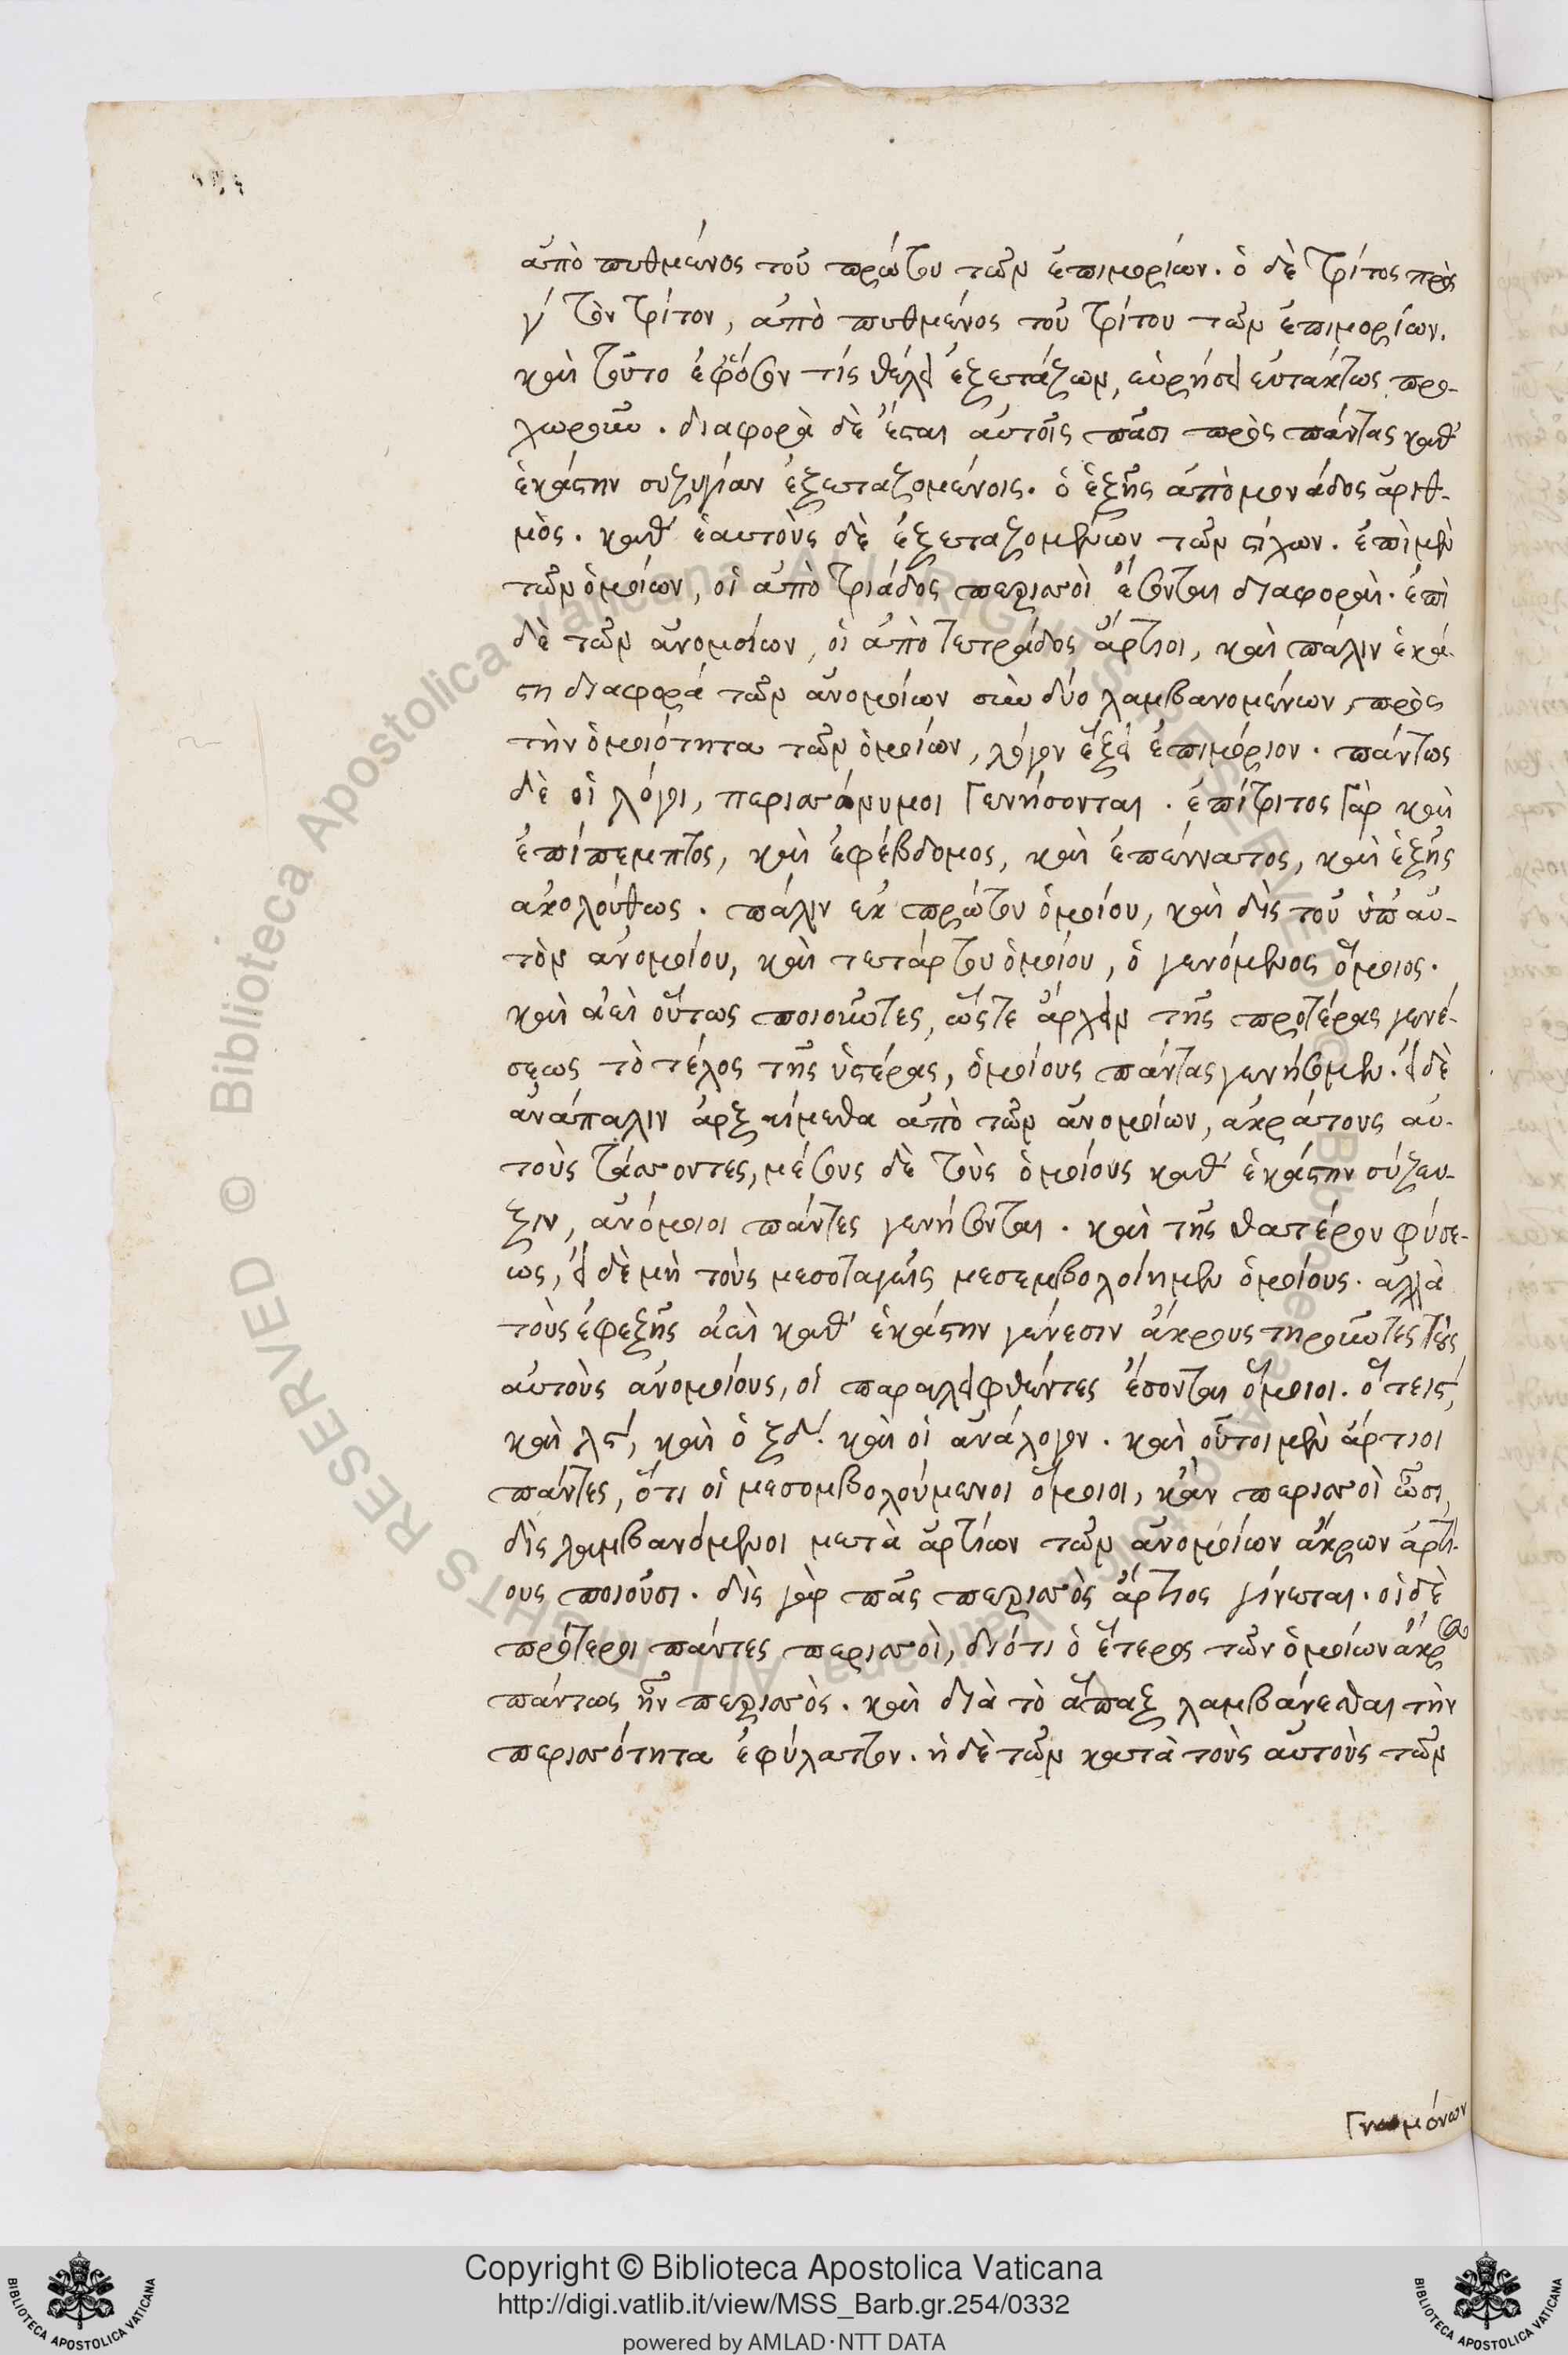 ἀπὸ πυθμένος τοῦ πρώτου τῶν ἐπιμορίων. ὁ δὲ τρίτος πρὸς
γ΄ τὸν τρίτον, ἀπὸ πυθμένος τοῦ τρίτου τῶν ἐπιμορίων.
καὶ τοῦτο ἐφόσον τίς θέλει ἐξετάζων, εὑρήσει εὐτάκτως προ-
χωροῦν. διαφορὰ δὲ ἔσται αὐτοῖς πᾶσι πρὸς πάντας καθ'
ἑκάστην συζυγίαν ἐξεταζομένοις. ὁ ἑξῆς ἀπὸ μονάδος ἀριθ-
μὸς. καθ' ἑαυτοὺς δὲ ἐξεταζομένων τῶν στίχων. ἐπὶ μὲν
τῶν ὁμοίων, οἱ ἀπὸ τριάδος περισσοὶ ἔσονται διαφοραὶ. ἐπὶ
δὲ τῶν ἀνομοίων, οἱ ἀπὸ τετράδος ἄρτιοι, καὶ πάλιν ἑκά-
στη διαφορά τῶν ἀνομοίων σὺν δύο λαμβανομένων, πρὸς
τὴν ὁμοιότητα τῶν ὁμοίων, λόγον ἕξει ἐπιμόριον. πάντως
δὲ οἱ λόγοι, περισσώνυμοι γεννήσονται. ἐπίτριτος γὰρ καὶ
ἐπίπεμπτος, καὶ ἐφέβδομος, καὶ ἐπέννατος, καὶ ἑξῆς
ἀκολούθως. πάλιν ἐκ πρώτου ὁμοίου, καὶ δὶς τοῦ ὑπ' αὐ-
τὸν ἀνομοίου, καὶ τετάρτου ὁμοίου, ὁ γενόμενος ὅμοιος.
καὶ ἀεὶ οὕτως ποιοῦντες, ὥστε ἄρχειν τῆς προτέρας γενέ-
σεως τὸ τέλος τῆς ὑστέρας, ὁμοίους πάντας γενήσομεν. εἰ δὲ
ἀνάπαλιν ἀρξαίμεθα ἀπὸ τῶν ἀνομοίων, ἀκράτους αὐ-
τοὺς τάσσοντες, μέσους δὲ τοὺς ὁμοίους καθ' ἑκάστην σύζευ-
ξιν, ἀνόμοιοι πάντες γενήσονται. καὶ τῆς θατέρου φύσε-
ως, εἰ δὲ μὴ τοὺς μεσοταγεῖς μεσεμβολοίημεν ὁμοίους. ἀλλὰ
τοὺς ἐφεξῆς ἀεὶ καθ' ἑκάστην γένεσιν ἄκρους τηροῦντες τοὺς
αὐτοὺς ἀνομοίους, οἱ παραλειφθέντες ἔσονται ὅμοιοι. ὅ τε ις΄,
καὶ λς΄, καὶ ὁ ξδ΄. καὶ οἱ ἀνάλογον. καὶ οὗτοι μὲν ἄρτιοι
πάντες, ὅτι οἱ μεσομβολούμενοι ὅμοιοι, κἂν περισσοὶ ὦσι,
δὶς λαμβανόμενοι μετὰ ἀρτίων τῶν ἀνομοίων ἄκρων ἀρτί-
ους ποιοῦσι. δὶς γὰρ πᾶς περισσὸς ἄρτιος γίνεται. οἱ δὲ
πρότεροι πάντες περισσοὶ, διότι ὁ ἕτερος τῶν ὁμοίων ἄκρος
πάντως ἦν περισσὸς. καὶ διὰ τὸ ἅπαξ λαμβάνεσθαι τὴν
περισσότητα ἐφύλαττον. ἡ δὲ τῶν κατὰ τοὺς αὐτοὺς τῶν
γνωμόνων
Copyright © Biblioteca Apostolica Vaticana
http://digi.vatlib.it/view/MSS_Barb.gr.254/0332
powered by AMLAD·NTT DATA
BIBLIOTECA APOSTOLICA VATICANA
BIBLIOTECA APOSTOLICA VATICANA